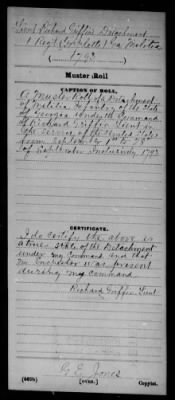 Lieut Richard Griffin's Detachment
1 Regt (Fauche's) Ga. Militia
(1793.)
Muster Roll
CAPTION OF ROLL.
A Muster Roll of a Detachment
of Militia Dragoons of the State
of Georgia under the Command
of Richard Griffin Lieut in
the service of the United States
from September 1st to 28
of September Inclusively 1793
CERTIFICATE.
I do certify the above is
a true state of the Detachment
under my Command and that
no Inspector was present
during my command
Richard Griffin Lieut
G. E. Jones
(660b) (OVER.) Copyist.